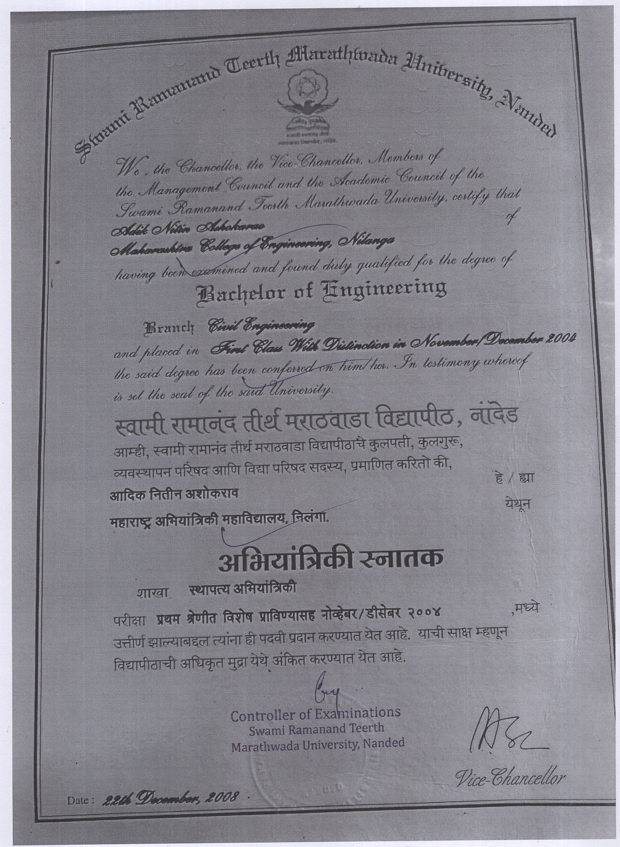 Swami Ramanand Teerth Marathwada University, Nanded
We, the Chancellor, the Vice-Chancellor, Members of
the Management Council and the Academic Council of the
Swami Ramanand Teerth Marathwada University, certify that
Adik Nitin Ashokarao of
Maharashtra College of Engineering, Nilanga
having been examined and found duly qualified for the degree of
Bachelor of Engineering
Branch Civil Engineering
and placed in First Class With Distinction in November/December 2004
the said degree has been conferred on him/her. In testimony whereof
is set the seal of the said University.
स्वामी रामानंद तीर्थ मराठवाडा विद्यापीठ, नांदेड
आम्ही, स्वामी रामानंद तीर्थ मराठवाडा विद्यापीठाचे कुलपती, कुलगुरू,
व्यवस्थापन परिषद आणि विद्या परिषद सदस्य, प्रमाणित करितो की,
हे / ह्या
आदिक नितीन अशोकराव
येथून
महाराष्ट्र अभियांत्रिकी महाविद्यालय, निलंगा.
अभियांत्रिकी स्नातक
शाखा स्थापत्य अभियांत्रिकी
परीक्षा प्रथम श्रेणीत विशेष प्राविण्यासह नोव्हेंबर/डीसेंबर २००४ ,मध्ये
उत्तीर्ण झाल्याबद्दल त्यांना ही पदवी प्रदान करण्यात येत आहे. याची साक्ष म्हणून
विद्यापीठाची अधिकृत मुद्रा येथे अंकित करण्यात येत आहे.
Controller of Examinations
Swami Ramanand Teerth
Marathwada University, Nanded
Vice-Chancellor
Date : 22th December, 2008